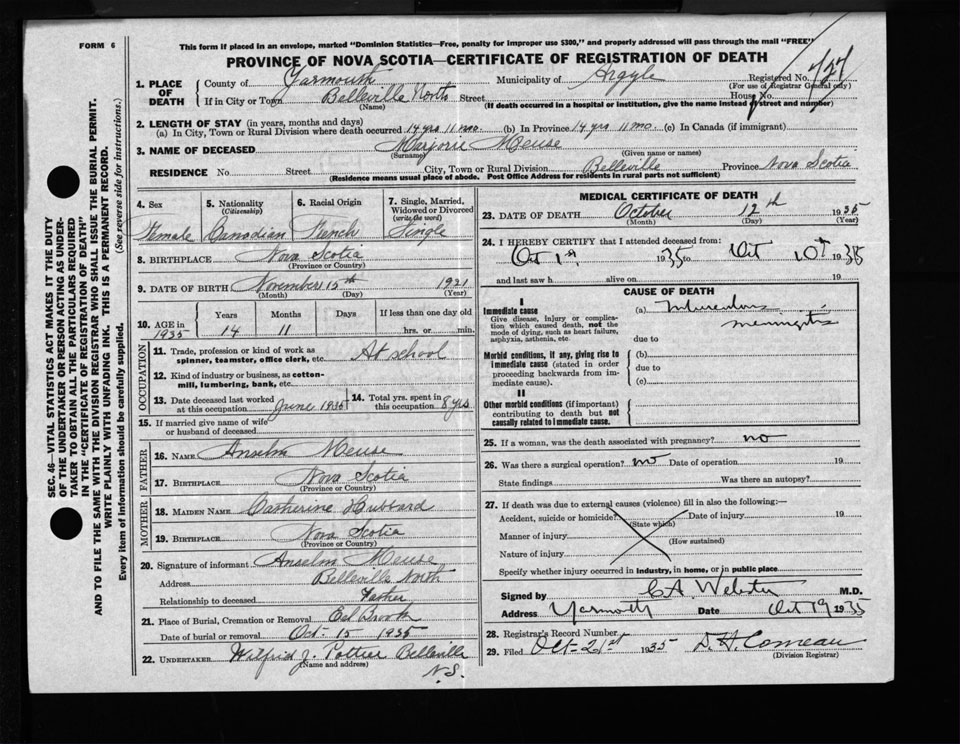 FORM 6
This form if placed in an envelope, marked "Dominion Statistics—Free, penalty for improper use $300," and properly addressed will pass through the mail "FREE"
PROVINCE OF NOVA SCOTIA—CERTIFICATE OF REGISTRATION OF DEATH
1. PLACE OF DEATH County of Yarmouth Municipality of Argyle Registered No. 727
(For use of Registrar General only)
If in City or Town Belleville North Street House No.
(Name) (If death occurred in a hospital or institution, give the name instead of street and number)
2. LENGTH OF STAY (in years, months and days)
(a) In City, Town or Rural Division where death occurred 14 yrs 11 mo. (b) In Province 14 yrs 11 mo. (c) In Canada (if immigrant)
3. NAME OF DECEASED Marjorie Meuse
(Surname) (Given name or names)
RESIDENCE No. Street City, Town or Rural Division Belleville Province Nova Scotia
(Residence means usual place of abode. Post Office Address for residents in rural parts not sufficient)
4. Sex 5. Nationality (Citizenship) 6. Racial Origin 7. Single, Married, Widowed or Divorced (write the word)
Female Canadian French Single
8. BIRTHPLACE Nova Scotia
(Province or Country)
9. DATE OF BIRTH November 15th 1921
(Month) (Day) (Year)
10. AGE in 1935 Years Months Days If less than one day old
14 11 hrs. or min.
OCCUPATION
11. Trade, profession or kind of work as spinner, teamster, office clerk, etc. At school
12. Kind of industry or business, as cotton-mill, lumbering, bank, etc.
13. Date deceased last worked at this occupation June 1935 14. Total yrs. spent in this occupation 8 yrs
15. If married give name of wife or husband of deceased
FATHER
16. NAME Anselm Meuse
17. BIRTHPLACE Nova Scotia
(Province or Country)
MOTHER
18. MAIDEN NAME Catherine Hubbard
19. BIRTHPLACE Nova Scotia
(Province or Country)
20. Signature of informant Anselm Meuse
Address Belleville North
Relationship to deceased Father
21. Place of Burial, Cremation or Removal Eel Brook
Date of burial or removal Oct- 15 1935
22. UNDERTAKER Wilfrid J. Pottier Belleville
(Name and address) N.S.
MEDICAL CERTIFICATE OF DEATH
23. DATE OF DEATH October 12th 1935
(Month) (Day) (Year)
24. I HEREBY CERTIFY that I attended deceased from:
Oct 1st 1935 to Oct 10th 1935
and last saw h alive on 19
CAUSE OF DEATH
I
Immediate cause (a) Tuberculous
Give disease, injury or complication which caused death, not the mode of dying, such as heart failure, asphyxia, asthenia, etc meningitis
due to
Morbid conditions, if any, giving rise to immediate cause (stated in order proceeding backwards from immediate cause). (b)
due to
(c)
II
Other morbid conditions (if important) contributing to death but not causally related to immediate cause.
25. If a woman, was the death associated with pregnancy? no
26. Was there a surgical operation? no Date of operation 19
State findings Was there an autopsy?
27. If death was due to external causes (violence) fill in also the following:
Accident, suicide or homicide? Date of injury 19
(State which)
Manner of injury
(How sustained)
Nature of injury
Specify whether injury occurred in industry, in home, or in public place
Signed by C.A. Webster M.D.
Address Yarmouth Date Oct 19 1935
28. Registrar's Record Number
29. Filed Oct-21st 1935 D. H. Comeau
(Division Registrar)
SEC. 46—VITAL STATISTICS ACT MAKES IT THE DUTY
OF THE UNDERTAKER OR PERSON ACTING AS UNDER-
TAKER TO OBTAIN ALL THE PARTICULARS REQUIRED
IN THE "CERTIFICATE OF REGISTRATION OF DEATH"
AND TO FILE THE SAME WITH THE DIVISION REGISTRAR WHO SHALL ISSUE THE BURIAL PERMIT.
WRITE PLAINLY WITH UNFADING INK. THIS IS A PERMANENT RECORD.
Every item of information should be carefully supplied. (See reverse side for instructions.)